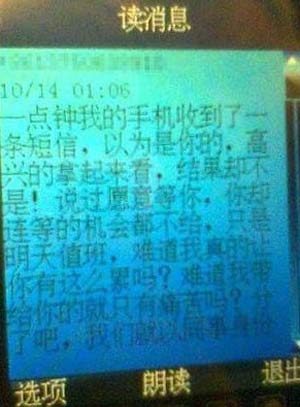 读消息
10/14 01:06
一点钟我的手机收到了一
条短信，以为是你的，高
兴的拿起来看，结果却不
是！说过愿意等你，你却
连等的机会都不给，只是
明天值班，难道我真的让
你有这么累吗？难道我带
给你的就只有痛苦吗？分
了吧，我们就以同事身份
选项 朗读 退出